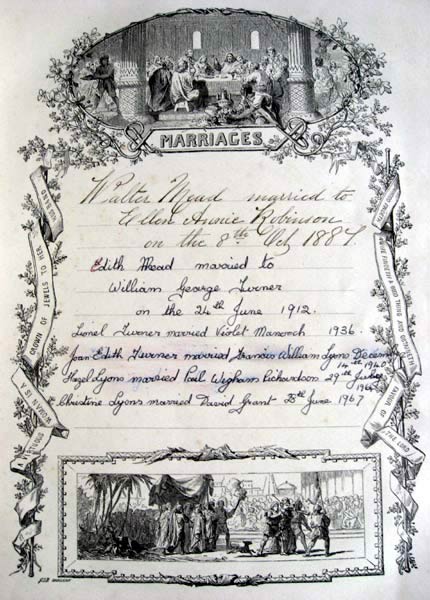 MARRIAGES
Walter Mead married to
Ellen Annie Robinson
on the 8th Oct 1887.
Edith Mead married to
William George Turner
on the 24th June 1912.
Lionel Turner married Violet 1936.
Joan Edith Turner married Francis William Lyons Decem
14th 1940
Hazel Lyons married Paul Wigham Richardson 27th
Christine Lyons married David Grant June 1967
A VIRTUOUS WOMAN IS A CROWN OF JEWELS TO HER HUSBAND
WHOSO FINDETH A WIFE FINDETH A GOOD THING AND OBTAINETH FAVOR OF THE LORD